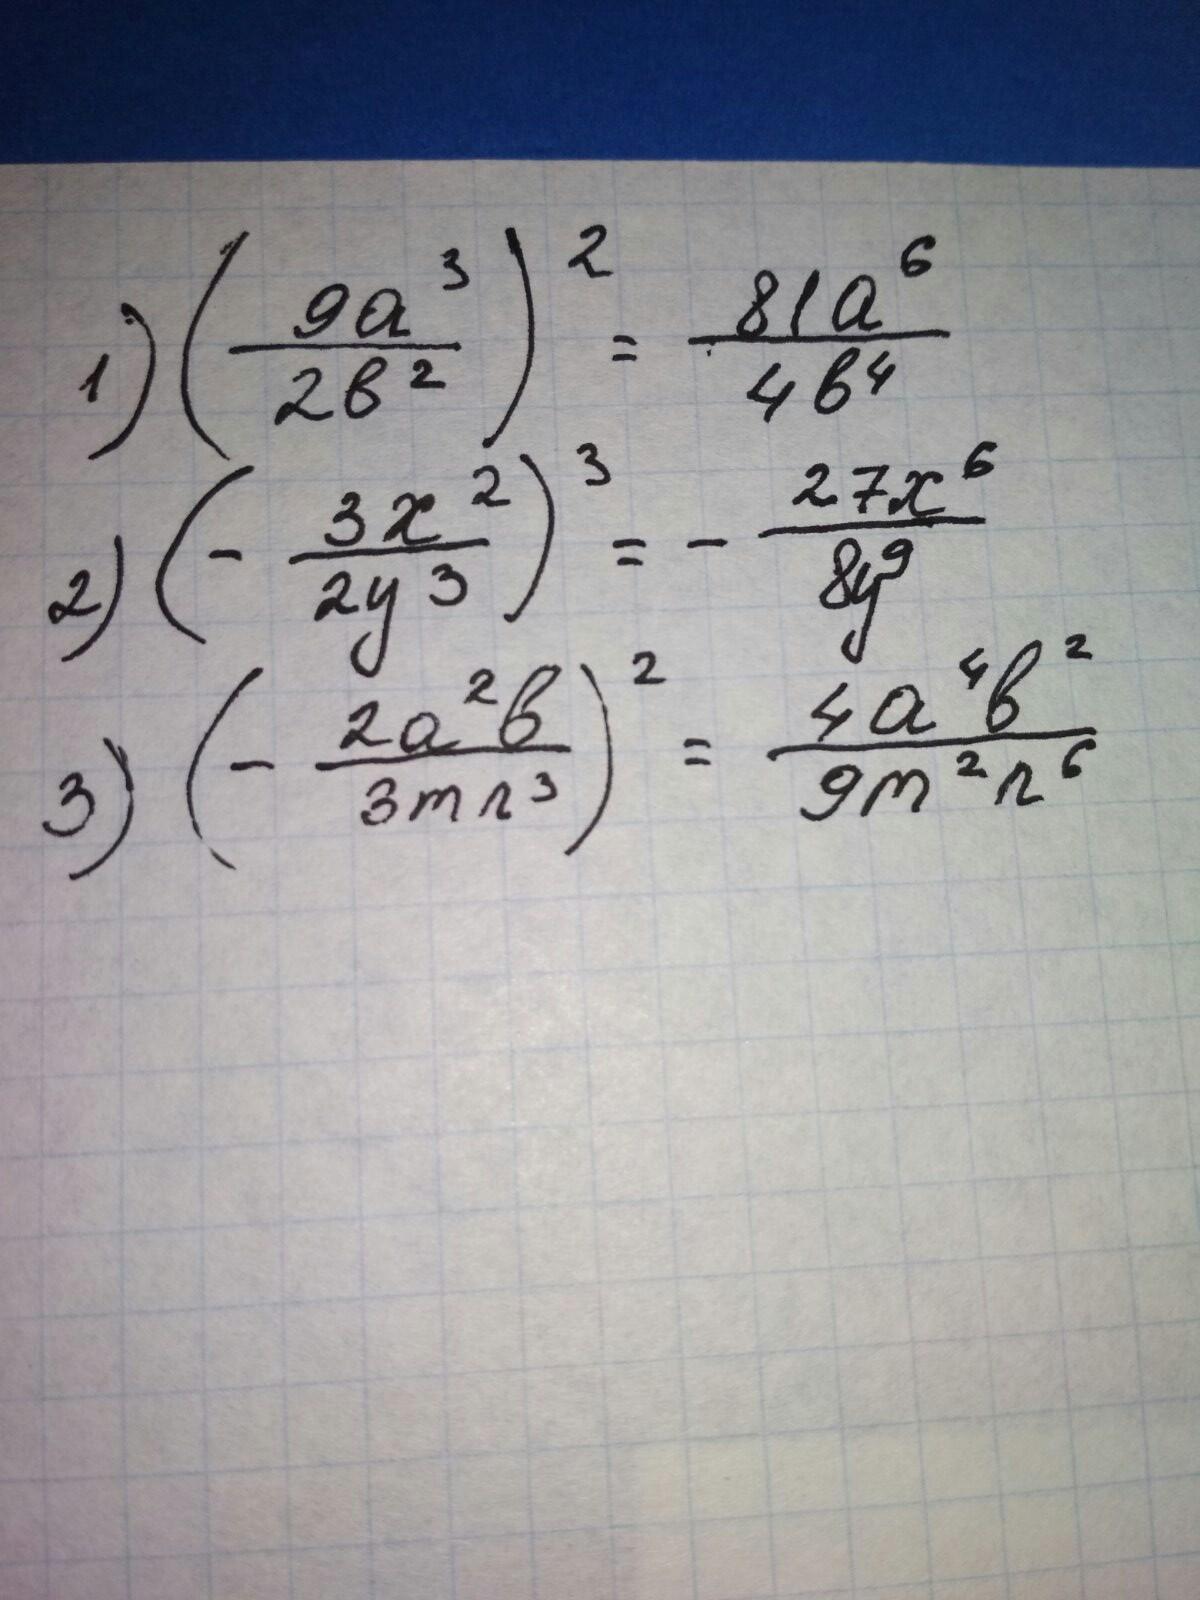 1) (9a³/2b²)² = 81a⁶/4b⁴
2) (- 3x²/2y³)³ = - 27x⁶/8y⁹
3) (- 2a²b/3mn³)² = 4a⁴b²/9m²n⁶